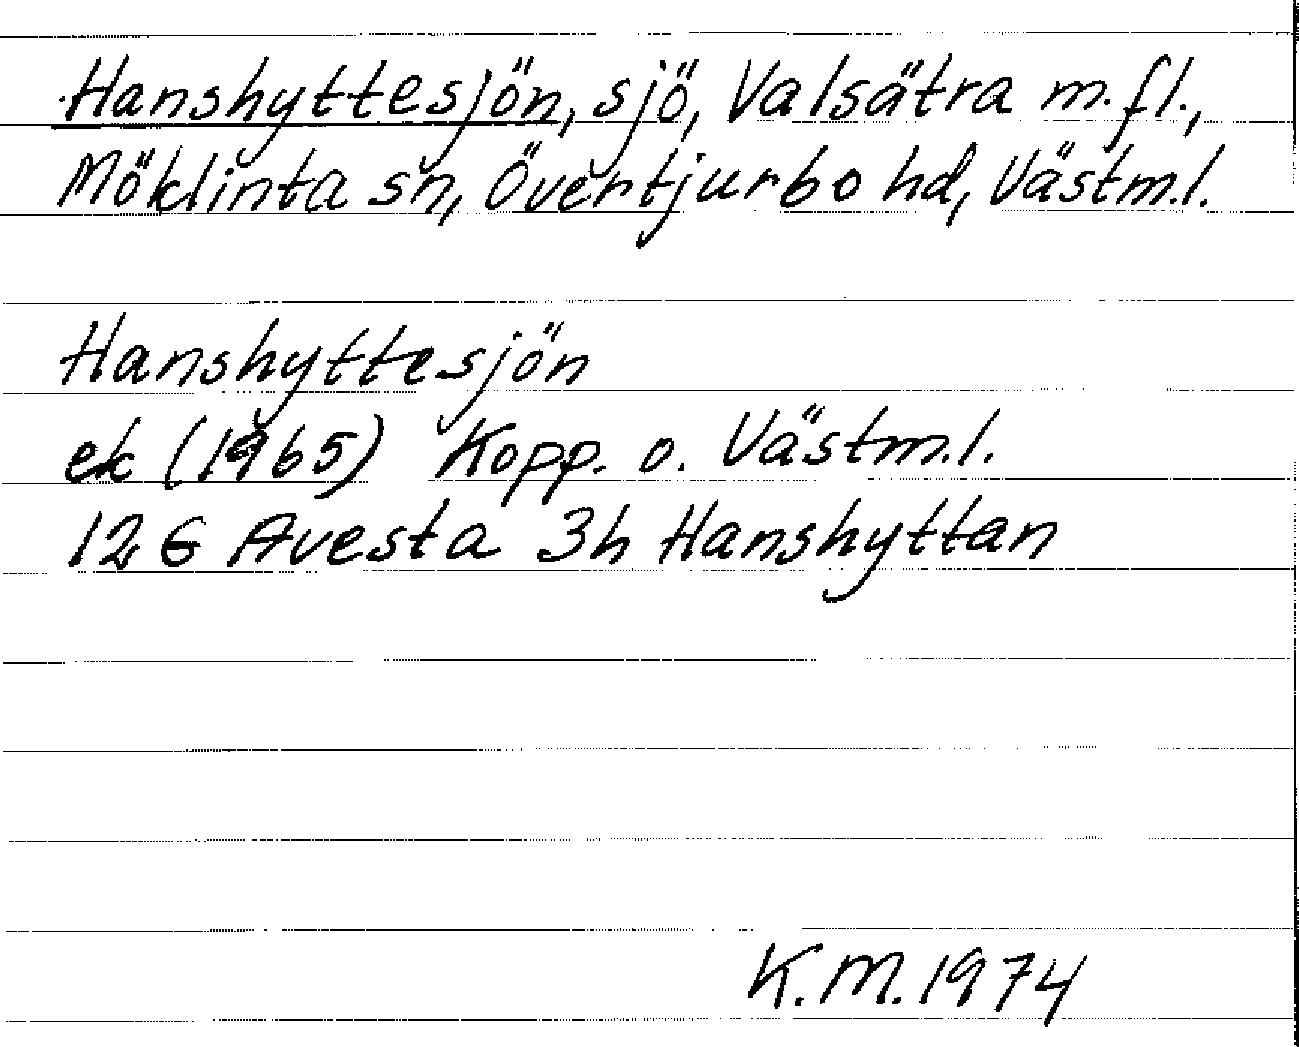 Hanshyttesjön, sjö, Valsätra m.fl.,
Möklinta sn, Övertjurbo hd, Västm.l.
Hanshyttesjön
ek (1965) Kopp. o. Västm.l.
12 G Avesta 3h Hanshyttan
K.M.1974